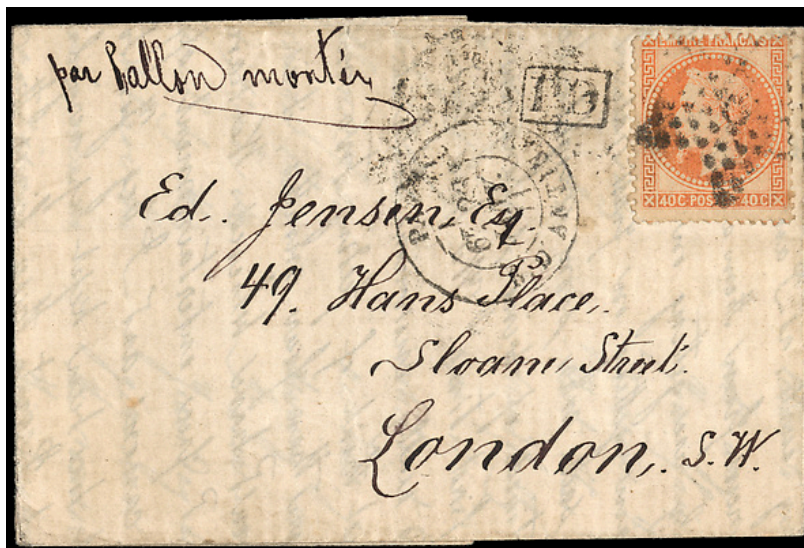 par ballon monté
PD
EMPIRE FRANCAIS
40 C POSTES 40 C
Ed. Jensen, Esq.
49. Hans Place,
Sloane Street.
London, S.W.